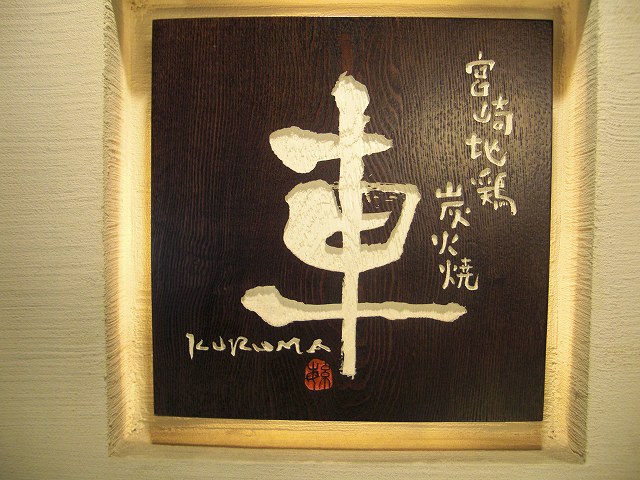 宮崎地鶏
炭火焼
車
KURUMA